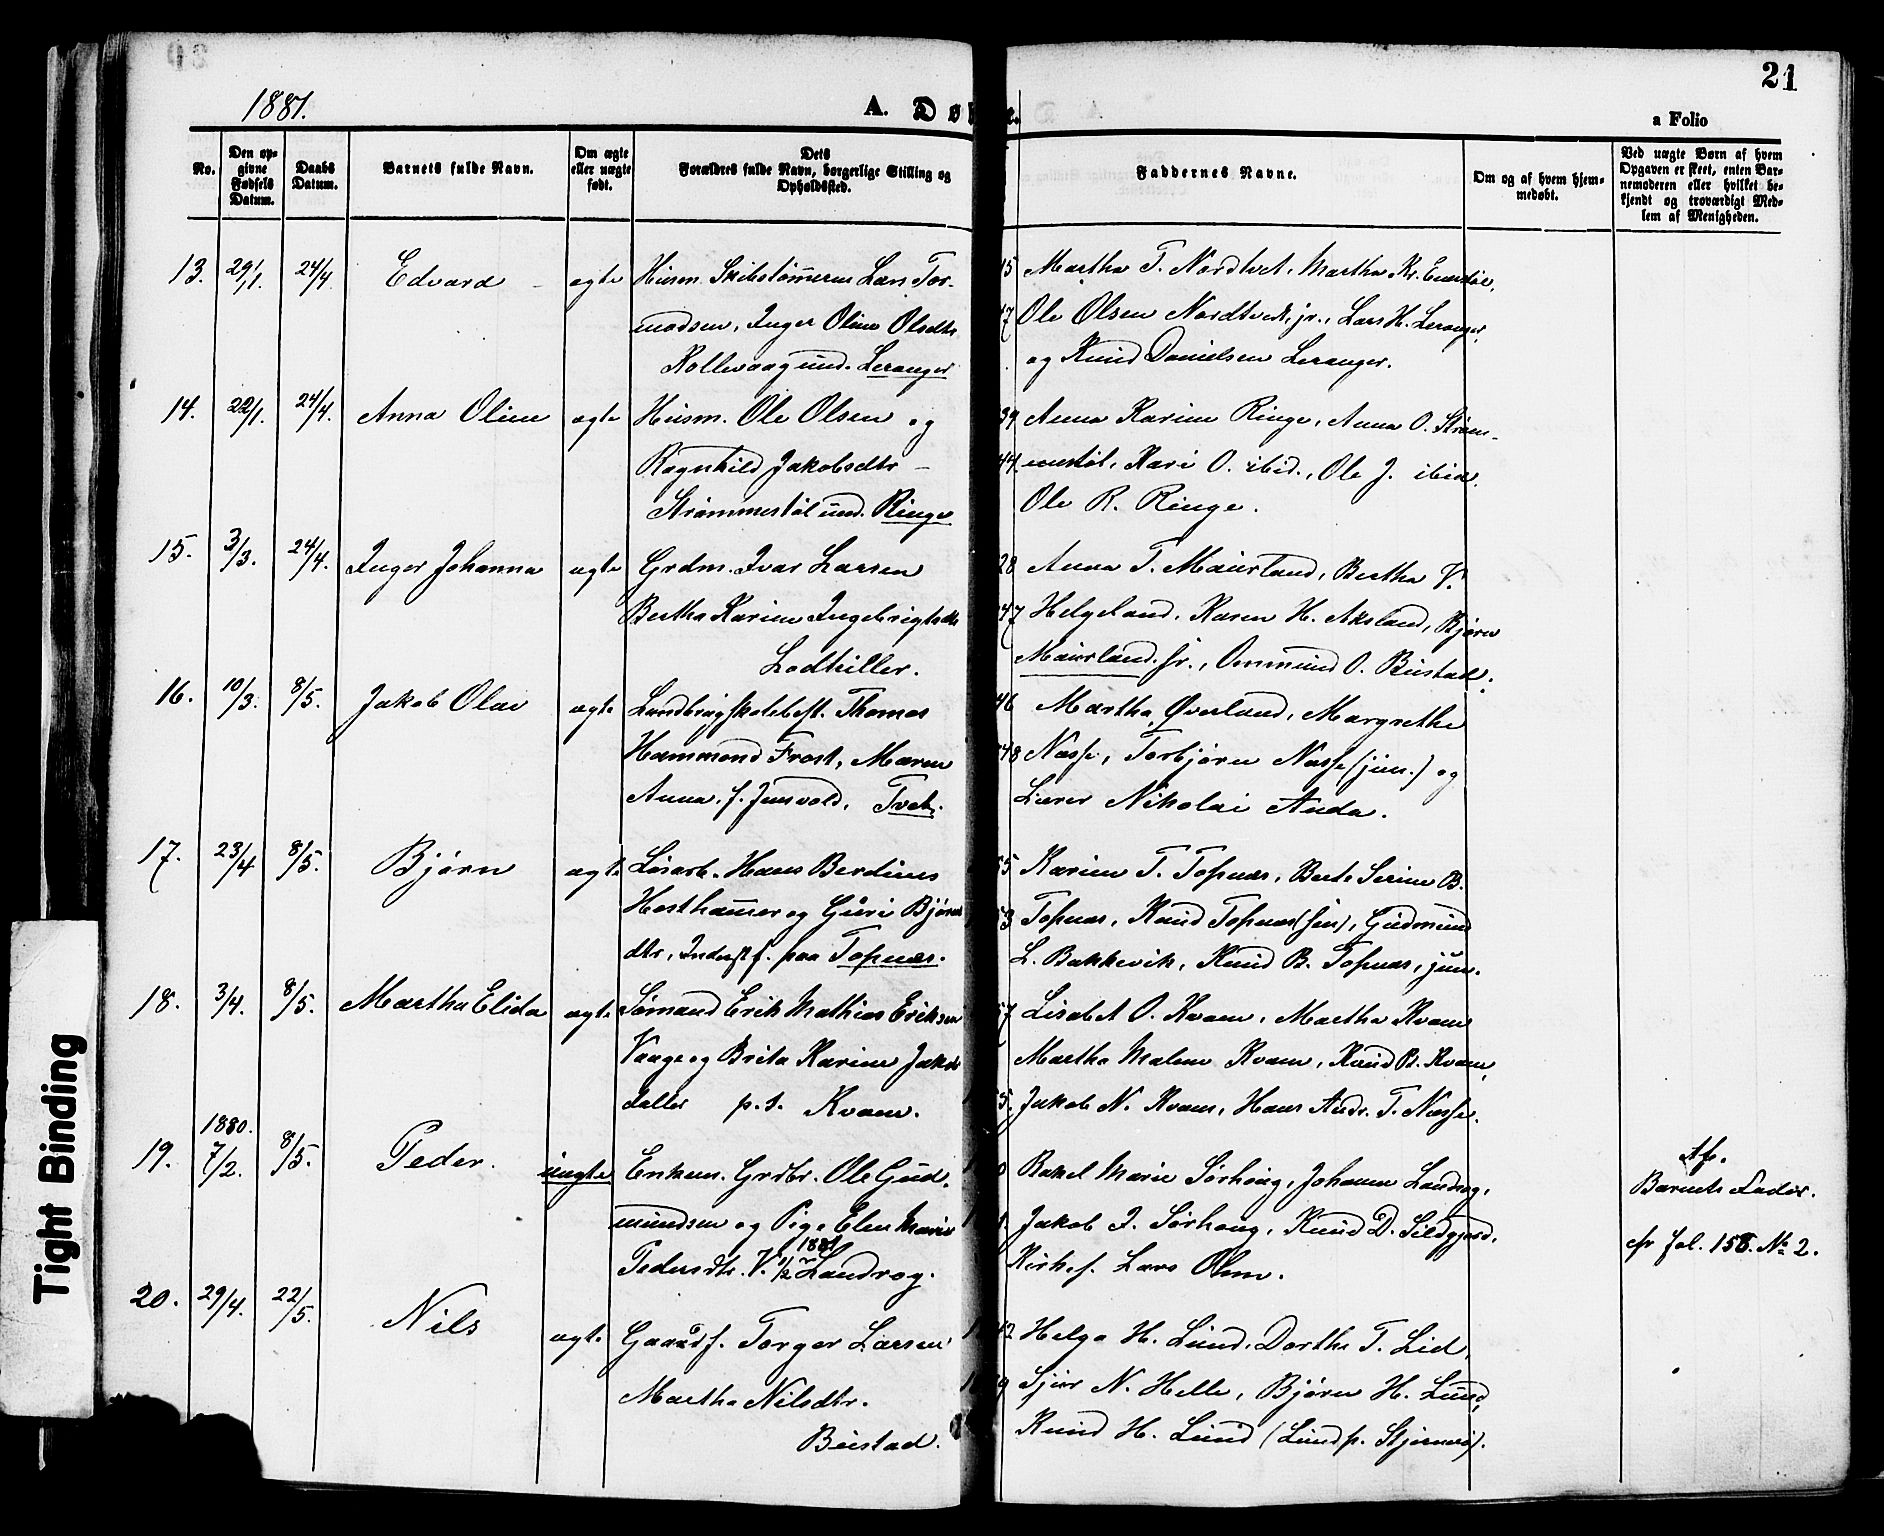 1881.
A. Døbte.
21
a Folio
No.
Den op-
givne
Fødsels
Datum.
Daabs
Datum.
Barnets fulde Navn.
Om ægte
eller uægte
født.
Dets
Forældres fulde Navn, borgerlige Stilling og
Opholdssted.
Faddernes Navne.
Om og af hvem hjem-
medøbt.
Ved uægte Børn af hvem
Opgaven er skeet, enten Bar-
nemoderen eller hvilket be-
kjendt og troværdigt Med-
lem af Menigheden.
13. 29/1. 24/4. Edvard ægte Husm. Skibstømerm Lars Tor-
modsen, Inger Oline Olsdtr
Kollevaag und. Leranger
Martha T. Nordtvet, Martha Kr.
Ole Olsen Nordtvedt, jr., Lars H. Leranger,
og Knud Danielsen Leranger.
14. 22/1. 24/4. Anna Oline ægte Husm. Ole Olsen og
Ragnhild Jakobsdtr -
Strømmestøl und. Ringe
39 Anna Karine Ringe, Anna O. Strøm-
44 mestøl, Kari O. ibid., Ole J. ibid.
Ole R. Ringe.
15. 3/3. 24/4. Inger Johanna ægte Grdm. Ivar Larsen
Bertha Karine Ingebrigtsdtr
Lodhiller.
28 Anna T. Maurland, Bertha V.
47 Helgeland, Karen H. Aksland, Bjørn
Maurland, sr., Ommund O. Bustad.
16. 10/3. 8/5. Jakob Olai ægte Landbrugskolebest. Thomas
Hammond Frost, Maren
Anna, f. Jensvold. Tvet.
46 Martha Øverland, Margrethe
48 Næsse, Torbjørn Næsse (jun.) og
Lærer Nikolai Auda.
17. 23/4 8/5. Bjørn ægte Løsarb. Hans Berdines
Hesthamer og Guri Bjørns
dtr, Inderstf. paa Topnæs.
55 Karine T. Topnæs, Berte Serine B.
53 Topnæs, Knud Topnæs (sen), Gudmund
L. Bakkevik, Knud B. Topnæs, jun.
18. 3/4. 8/5. Martha Elida ægte Sømand Erik Mathias Eriksen
Vaage og Brita Karine Jakobs
datter p. t. Kvam.
57 Lisabet O. Kvam, Martha Kvam
Martha Malene Kvam, Knud B. Kvam,
5. Jakob N. Kvam, Hans Andr. T. Næsse.
1880.
19. 7/2. 8/5. Peder. uægte Enkem. Grdbr. Ole Gud-
mundsen og Pige Elen Marie
Pedersdtr. V. 1/2 1881 Landrog.
Rakel Marie Sørhoug, Johanna Landrog,
Jakob J. Sørhoug, Knud D. Sildgjerd,
Kirkes. Lars Olsen.
Af.
Barnets Fader.
cfr fol. 158. No 2.
20. 29/4. 22/5. Nils ægte Gaardf. Torger Larsen
Martha Nilsdtr.
Bustad.
Helga H. Lund, Dorthe T. Lid,
Sjur N. Helle, Bjørn H. Lund,
Knud H. Lund (Lund p. Stjernerø).
Tight Binding